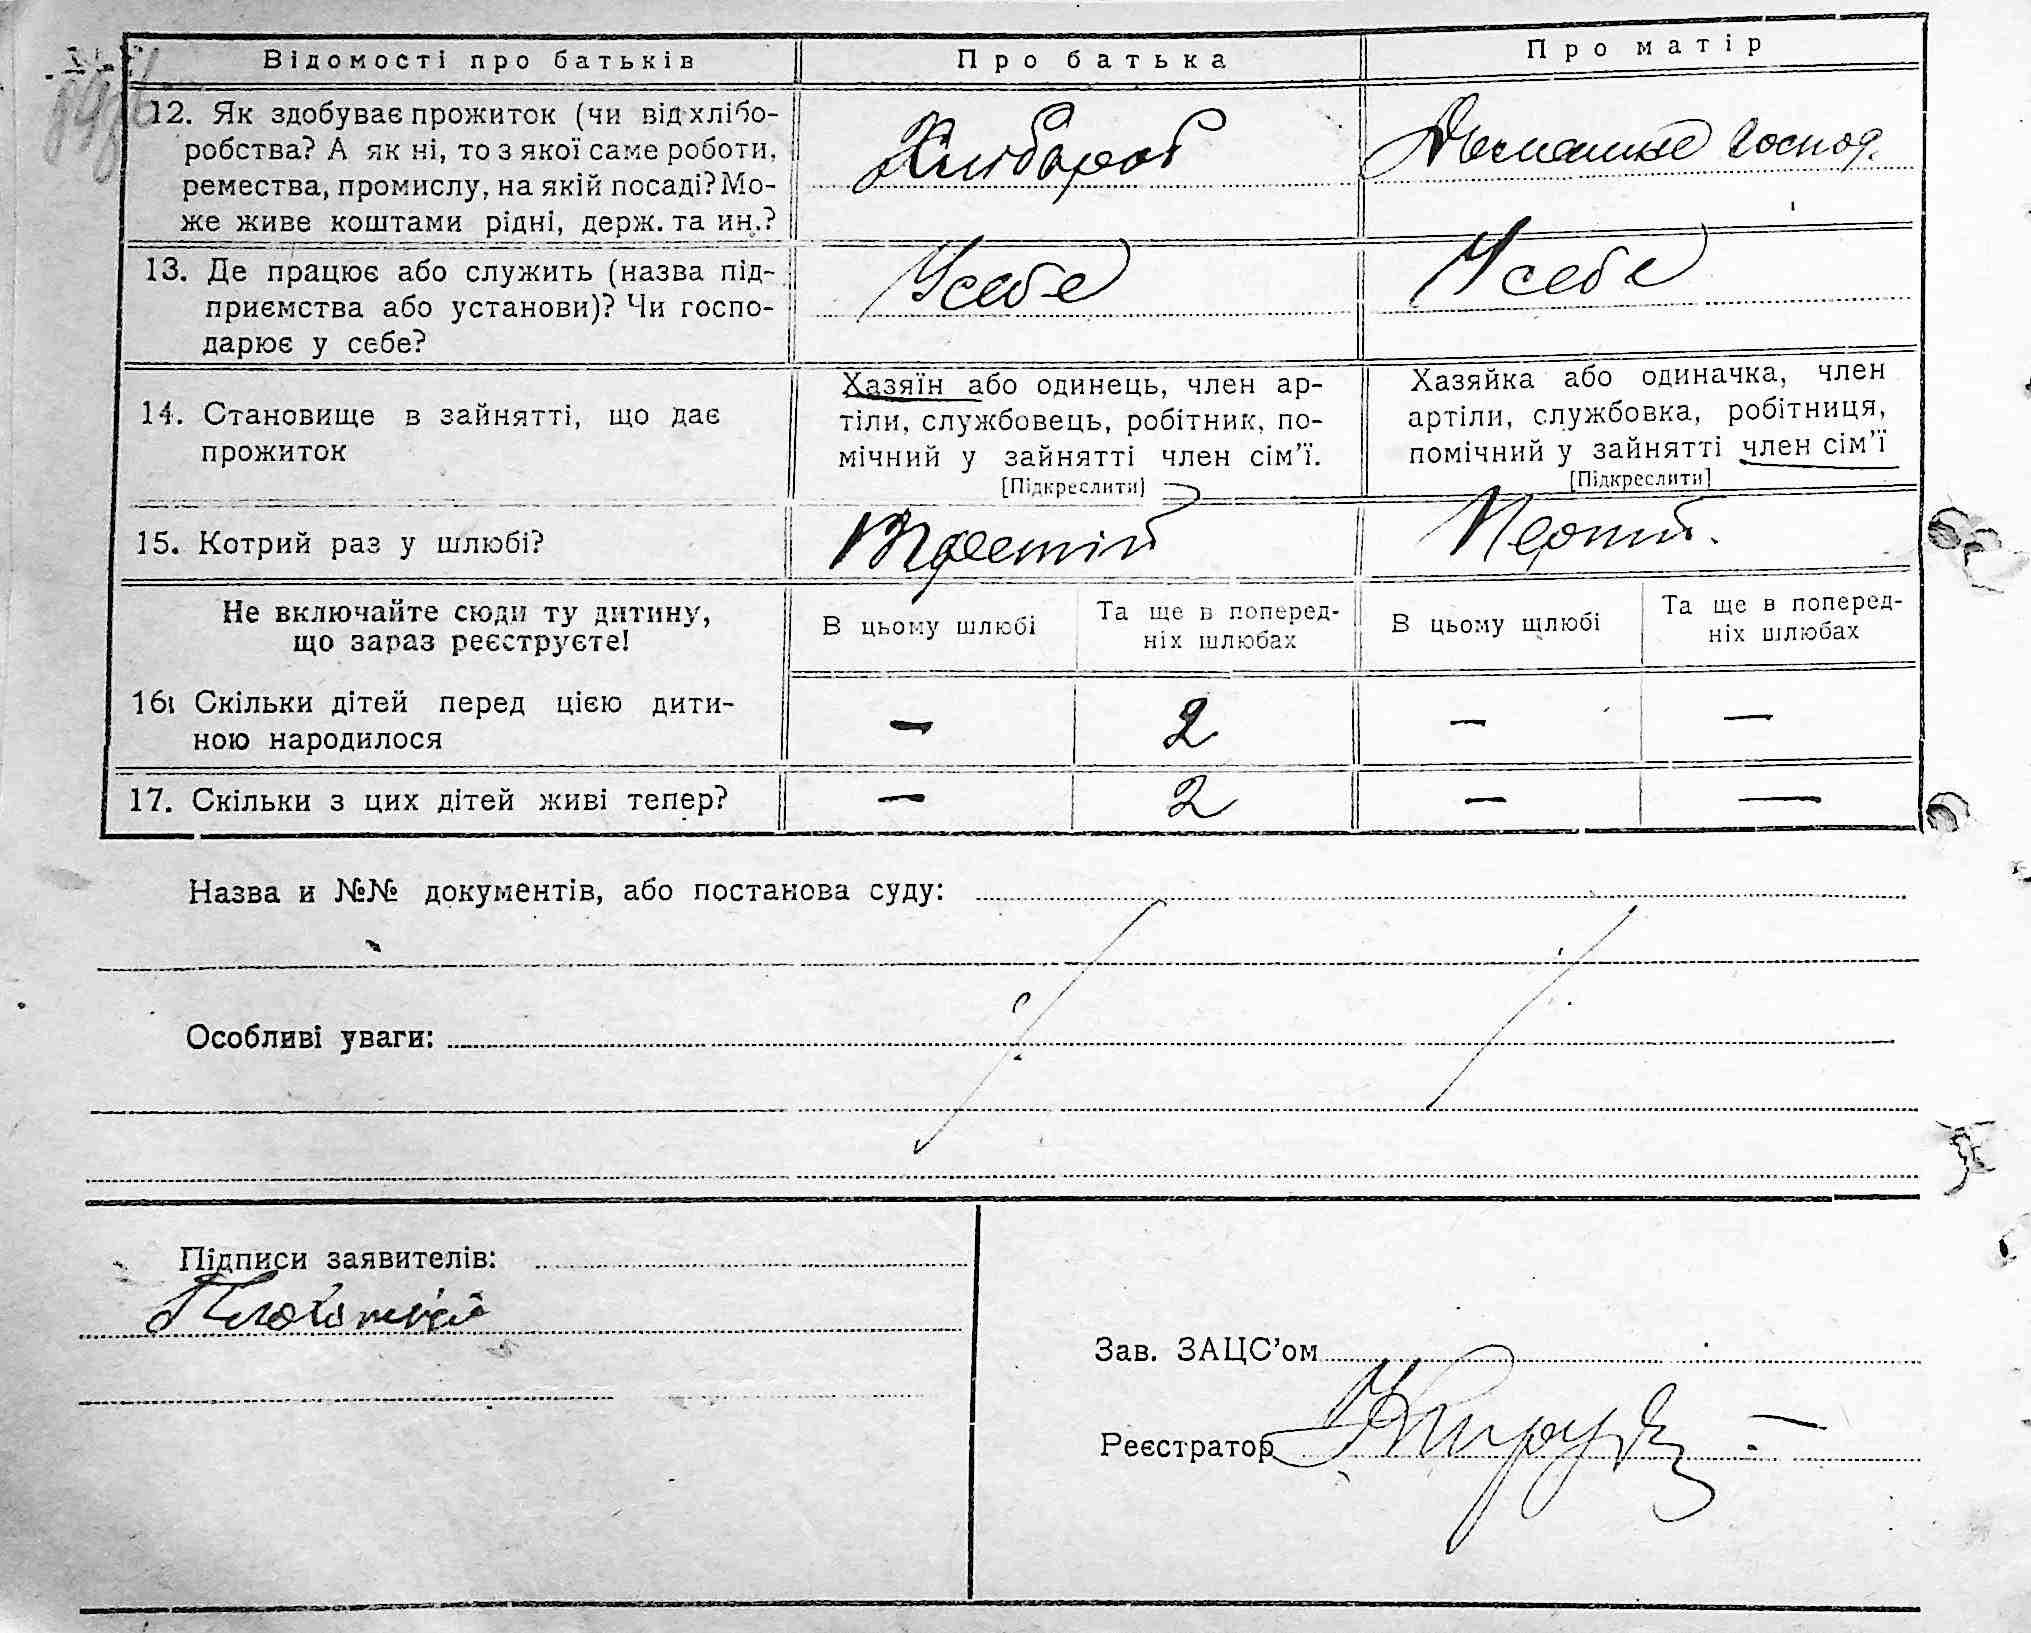 Відомості про батьків Про батька Про матір
12. Як здобуває прожиток (чи від хлібо-
робства? А як ні, то з якої саме роботи,
ремества, промислу, на якій посаді? Мо-
же живе коштами рідні, держ. та ин.?
Хлібороб Домашнє господ.
13. Де працює або служить (назва під-
приємства або установи)? Чи госпо-
дарює у себе?
У себе У себе
14. Становище в зайнятті, що дає
прожиток
Хазяїн або одинець, член ар-
тіли, службовець, робітник, по-
мічний у зайнятті член сім'ї.
[Підкреслити]
Хазяйка або одиначка, член
артіли, службовка, робітниця,
помічний у зайнятті член сім'ї
[Підкреслити]
15. Котрий раз у шлюбі? Третій Перший.
Не включайте сюди ту дитину,
що зараз реєструєте!
В цьому шлюбі
Та ще в поперед-
ніх шлюбах
В цьому шлюбі
Та ще в поперед-
ніх шлюбах
16. Скільки дітей перед цією дити-
ною народилося
— 2 — —
17. Скільки з цих дітей живі тепер? — 2 — —
Назва и №№ документів, або постанова суду:
Особливі уваги:
Підписи заявителів:
Зав. ЗАЦС'ом
Реєстратор